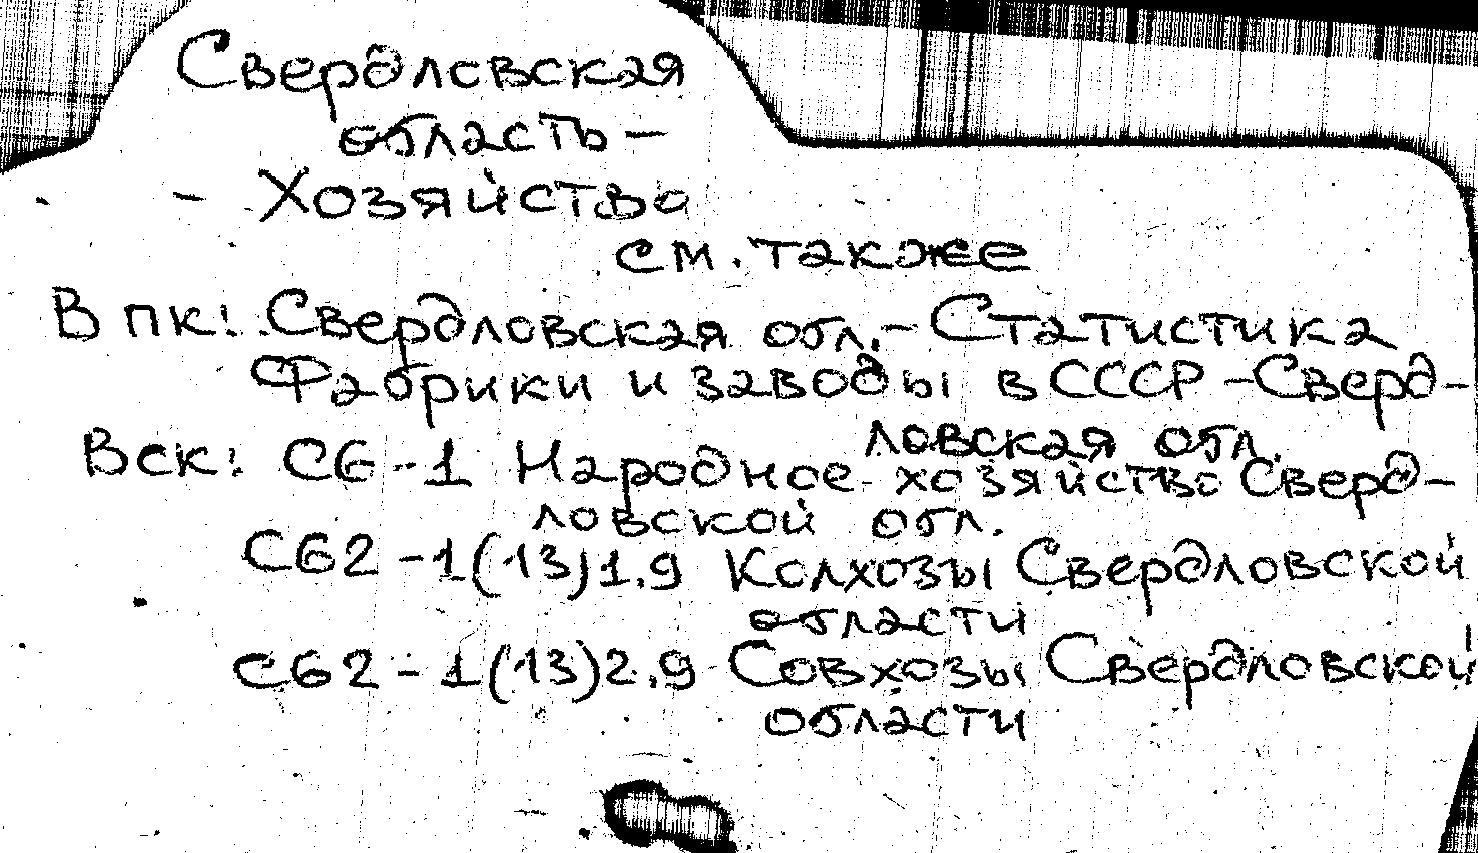 Свердловская
область –
– Хозяйство
см. также
В пк: Свердловская обл. – Статистика
Фабрики и заводы в СССР – Сверд-
ловская обл.
В ск: С6-1 Народное хозяйство Сверд-
ловской обл.
С62-1(13)1.9 Колхозы Свердловской
области
С62-1(13)2.9 Совхозы Свердловской
области